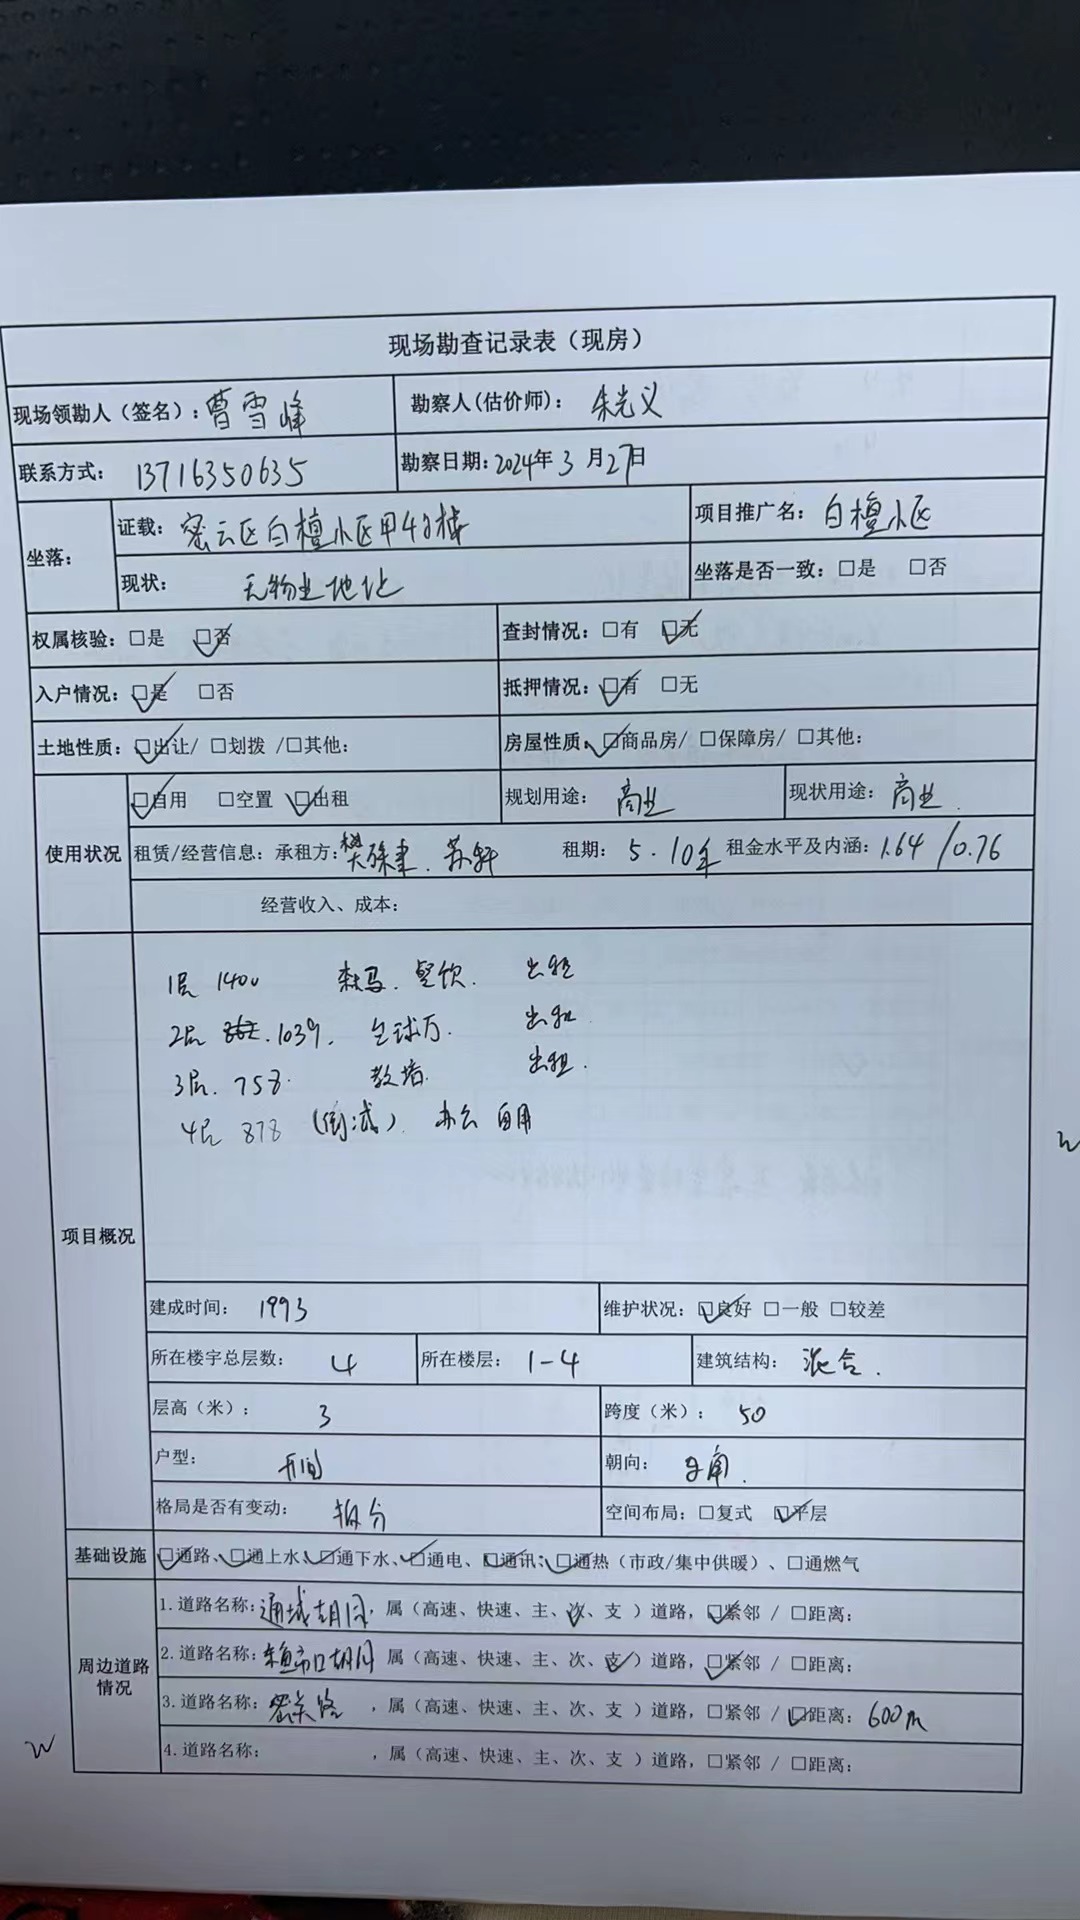 现场勘查记录表（现房）
现场领勘人（签名）：曹雪峰 勘察人(估价师)：朱光义
联系方式：13716350635 勘察日期：2024年3月27日
坐落： 证载：密云区白檀小区甲4号楼 项目推广名：白檀小区
现状：无物业地址 坐落是否一致：□是 □否
权属核验：□是 ☑否 查封情况：□有 ☑无
入户情况：☑是 □否 抵押情况：☑有 □无
土地性质：☑出让/ □划拨 /□其他： 房屋性质：☑商品房/ □保障房/ □其他：
使用状况 ☑自用 □空置 ☑出租 规划用途：商业 现状用途：商业.
租赁/经营信息：承租方：樊 . 苏轩 租期：5.10年 租金水平及内涵：1.64/0.76
经营收入、成本：
项目概况
1层 1400 森马.餐饮. 出租
2层 .1039. 台球厅. 出租
3层.758. 教培. 出租.
4层 878 ( ). 办公 自用
建成时间：1993 维护状况：☑良好 □一般 □较差
所在楼宇总层数：4 所在楼层：1-4 建筑结构：混合.
层高（米）：3 跨度（米）：50
户型：开间 朝向：南.
格局是否有变动：拆分 空间布局：□复式 ☑平层
基础设施 ☑通路、☑通上水、☑通下水、☑通电、☑通讯、☑通热（市政/集中供暖）、□通燃气
周边道路情况
1.道路名称：通城胡同，属（高速、快速、主、次、支 ）道路，☑紧邻 / □距离：
2.道路名称：鱼市口胡同 属（高速、快速、主、次、支 ）道路，☑紧邻 / □距离：
3.道路名称：密关路 ，属（高速、快速、主、次、支 ）道路，□紧邻 / ☑距离：600m
4.道路名称： ，属（高速、快速、主、次、支 ）道路，□紧邻 / □距离：